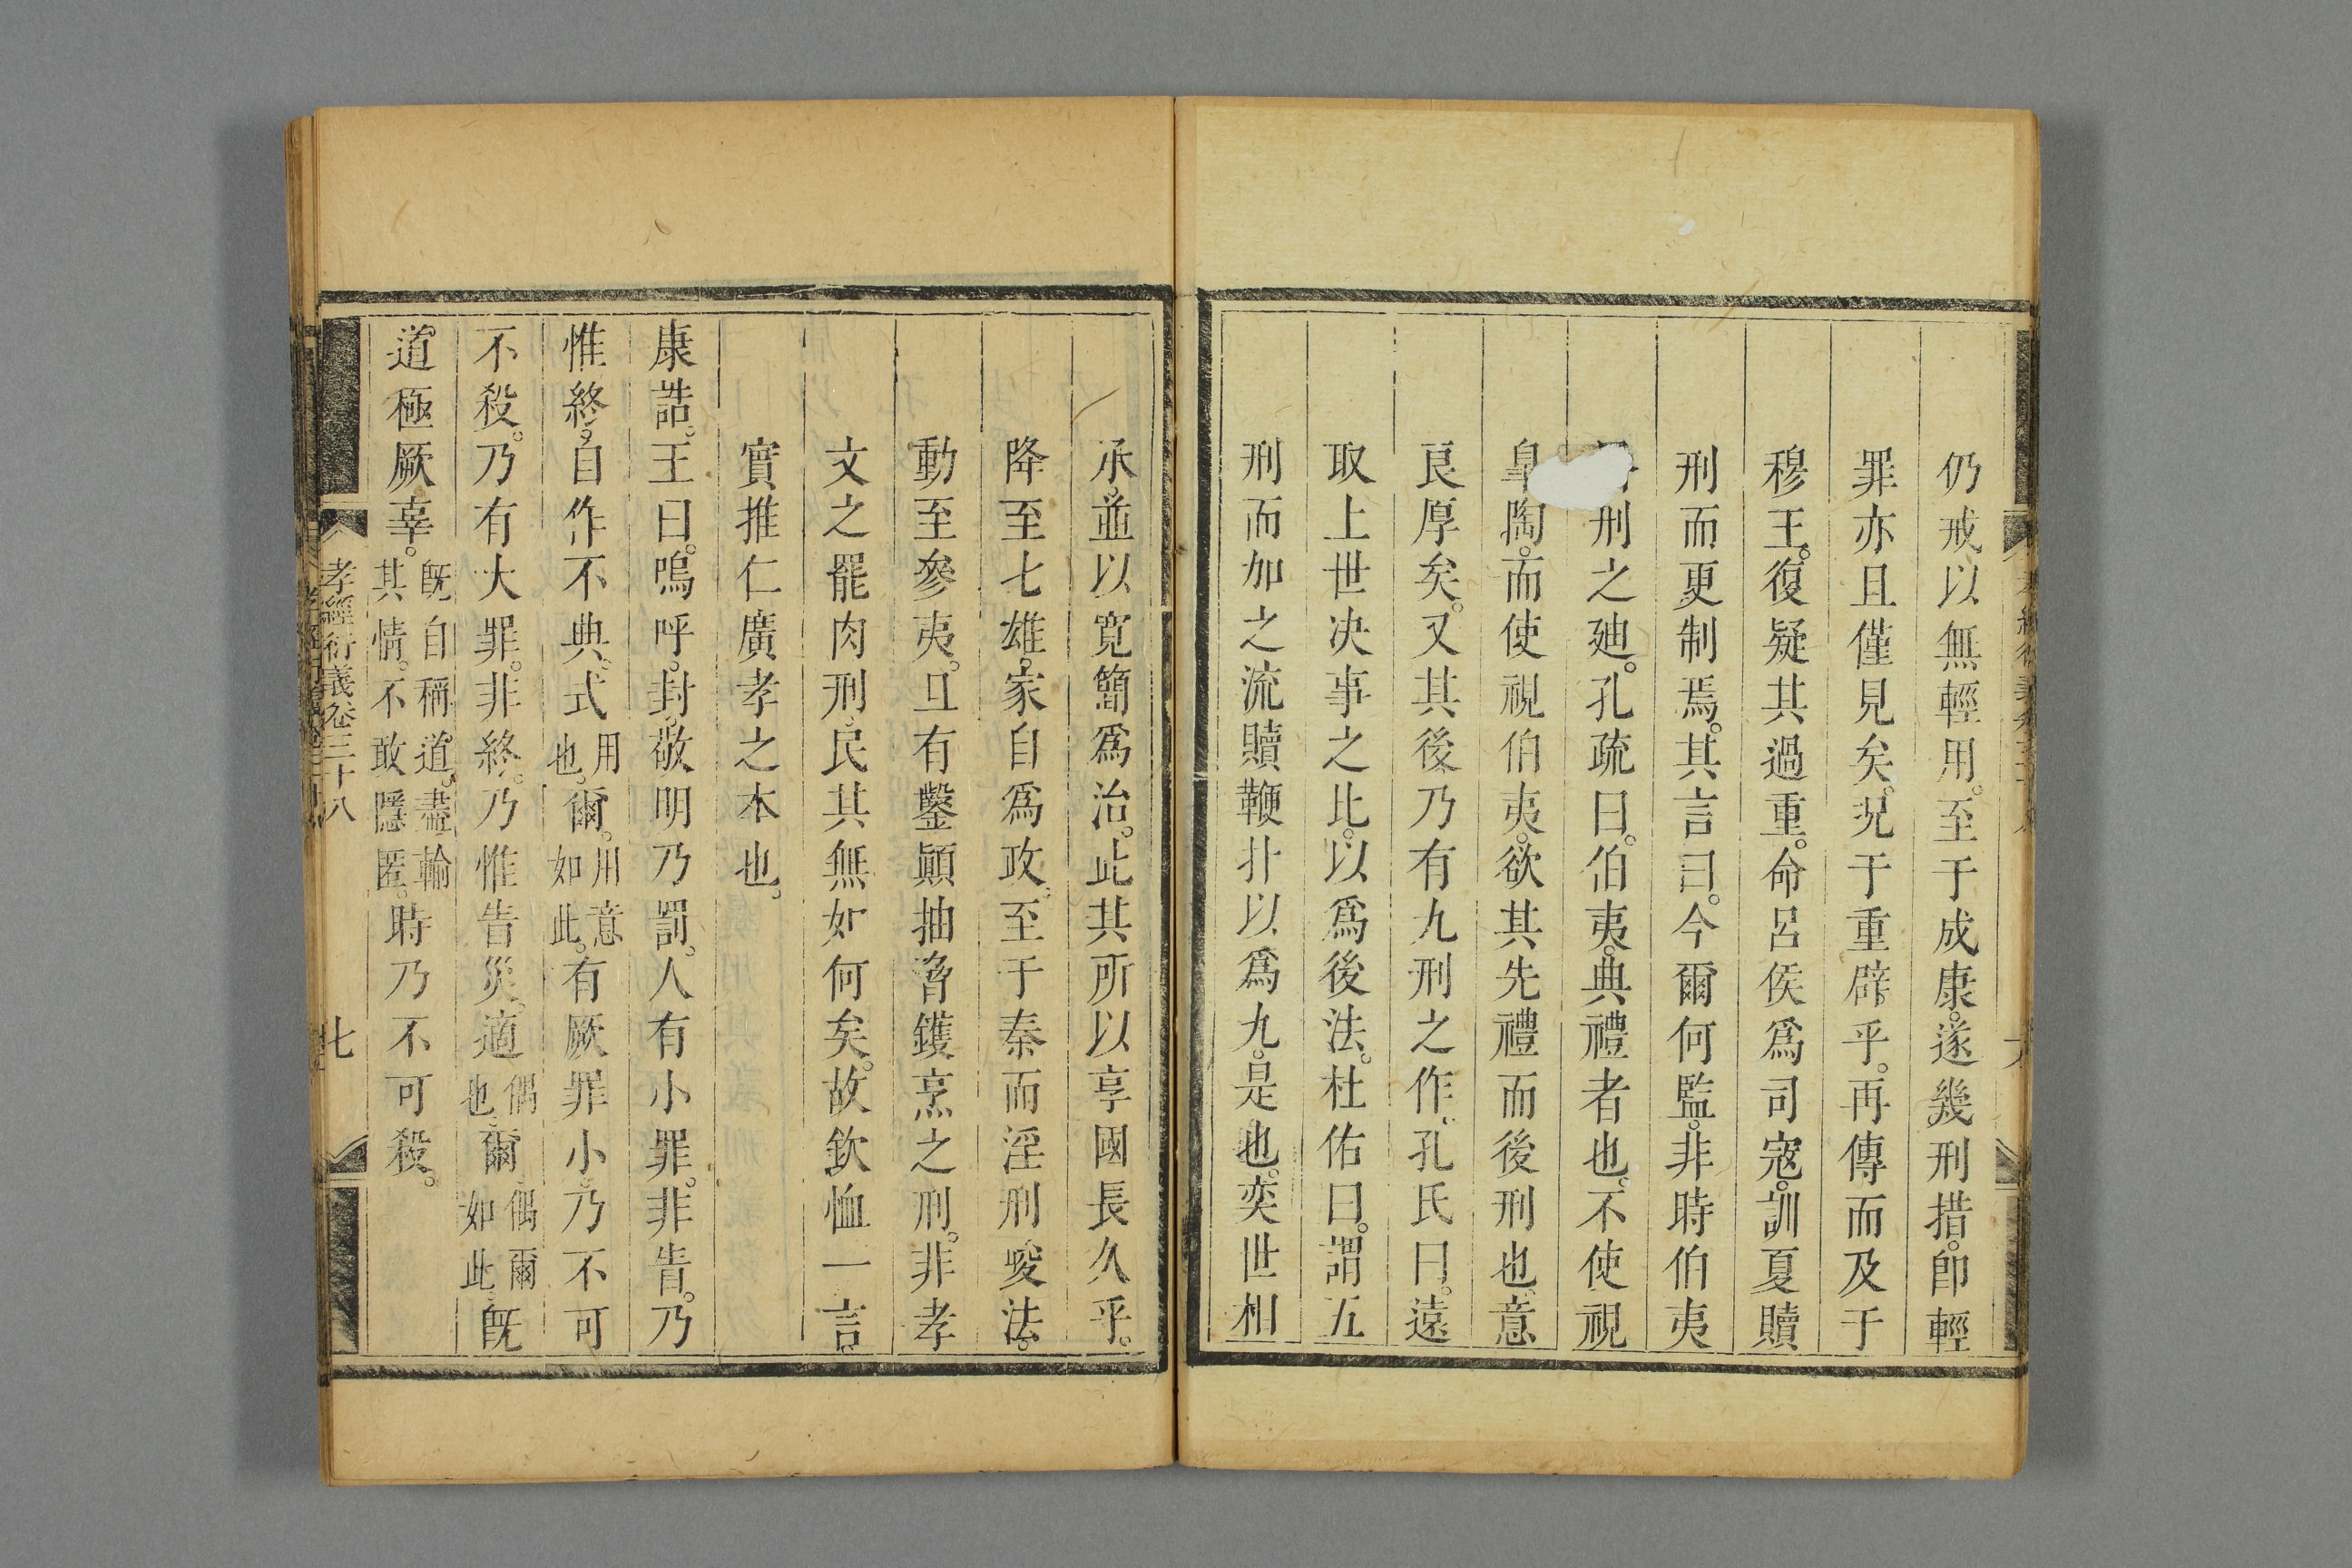 仍戒以無輕用。至于成康。遂幾刑措。卽輕
罪亦且僅見矣。况于重辟乎。再傳而及于
穆王。復疑其過重。命呂侯爲司寇。訓夏贖
刑而更制焉。其言曰。今爾何監。非時伯夷
刑之廸。孔疏曰。伯夷。典禮者也。不使視
皐陶。而使視伯夷。欲其先禮而後刑也。意
良厚矣。又其後乃有九刑之作。孔氏曰。遠
取上世决事之比。以爲後法。杜佑曰。謂五
刑而加之流贖鞭扑以爲九。是也。奕世相
承。並以寬簡爲治。此其所以享國長久乎。
降至七雄。家自爲政。至于秦而淫刑峻法。
動至參夷。且有鑿顚抽脅鑊烹之刑。非孝
文之罷肉刑。民其無如何矣。故欽恤一言
實推仁廣孝之本也。
康誥。王曰。嗚呼。封。敬明乃罰。人有小罪。非眚。乃
惟終。自作不典。式用也。爾。用意如此。有厥罪小。乃不可
不殺。乃有大罪。非終。乃惟眚災。適偶也。爾。偶爾如此。旣
道極厥辜。旣自稱道。盡輸其情。不敢隱匿。時乃不可殺。
孝經衍義卷三十八
七